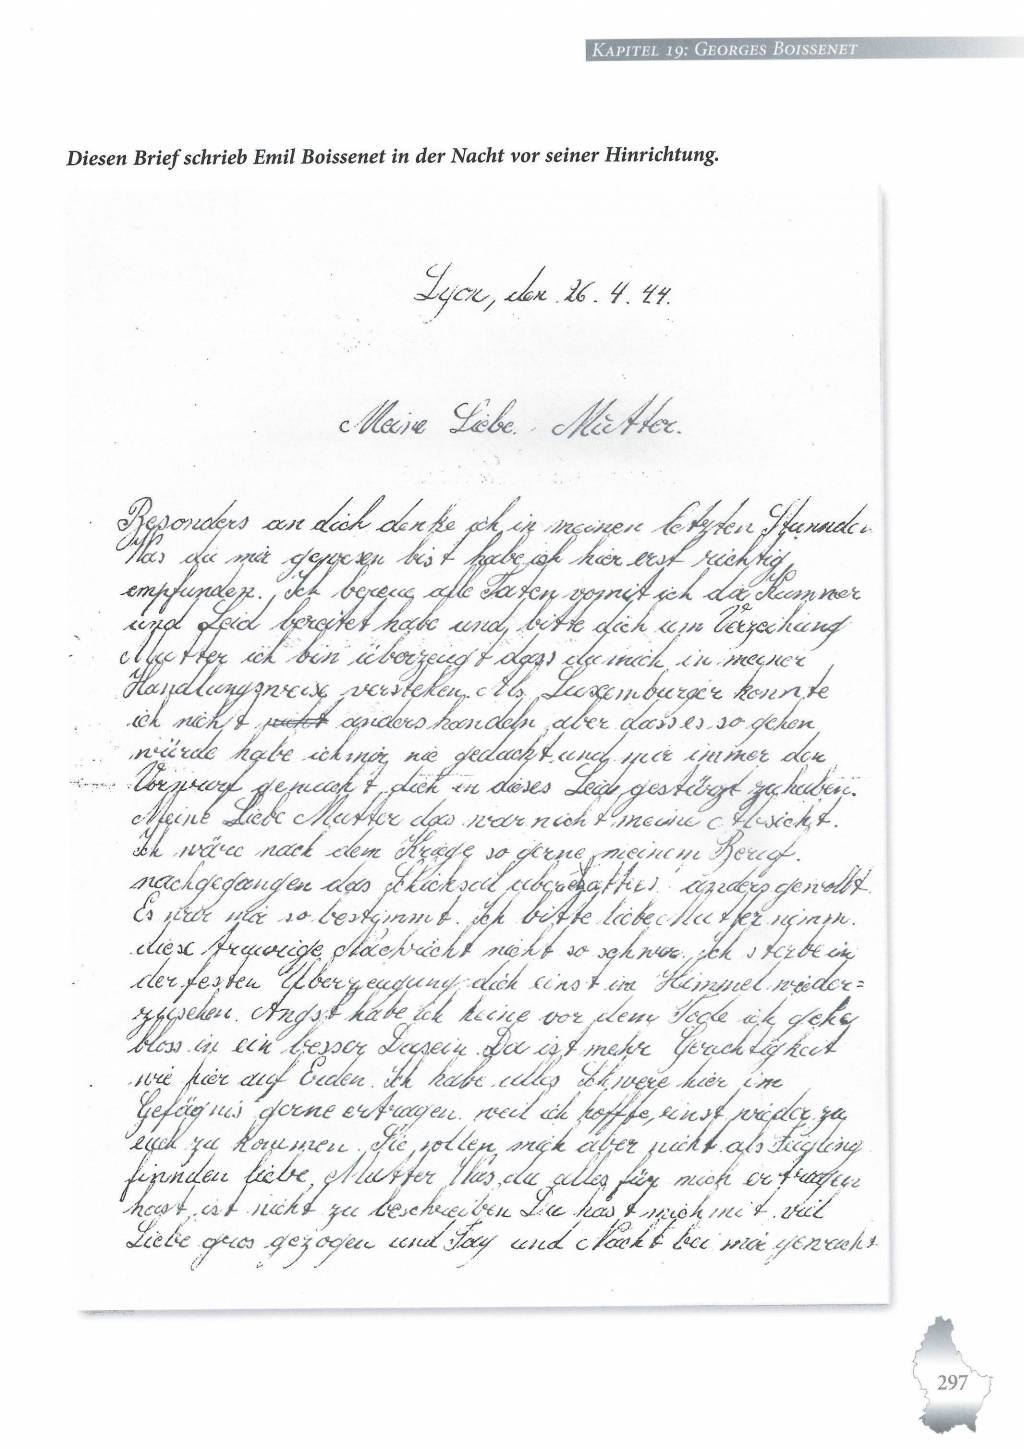 KAPITEL 19: GEORGES BOISSENET
Diesen Brief schrieb Emil Boissenet in der Nacht vor seiner Hinrichtung.
Lyon, den 26. 4. 44.
Meine Liebe Mutter.
Besonders an dich denke ich in meinen letzten Stunnden
Was du mir gewesen bist habe ich hier erst richtig
empfunden. Ich bereue alle Taten womit ich dir Kummer
und Leid bereitet habe und bitte dich um Verzeihung
Mutter ich bin überzeugt dass du mich in meiner
Handlungsweise verstehen. Als Luxemburger konnte
ich nicht nicht anders handeln, aber dass es so gehen
würde habe ich mir nie gedacht und mir immer den
Vorwurf gemacht dich in dieses Leid gestürzt zu haben.
Meine Liebe Mutter das war nicht meine Absicht.
Ich wäre nach dem Kriege so gerne meinem Beruf.
nachgegangen das Schicksal aber anders gewollt.
Es war mir so bestimmt. Ich bitte liebe Mutter nimm.
diese traurige Nachricht nicht so schwer. Ich sterbe in
der festen Überzeugung dich einst im Himmel wieder=
zusehen. Angst habe ich keine vor dem Tode ich gehe
bloss in ein besser Dasein. Da ist mehr Gerechtigkeit
wie hier auf Erden. Ich habe alles Schwere hier im
Gefägnis gerne ertragen weil ich hoffte, einst wieder zu
euch zu kommen. Sie sollen mich aber nicht als Feigling
finnden liebe Mutter Was du alles für mich ertragen
hast, ist nicht zu beschreiben Du hast mich mit viel
Liebe gros gezogen und Tag und Nacht bei mir gewacht
297